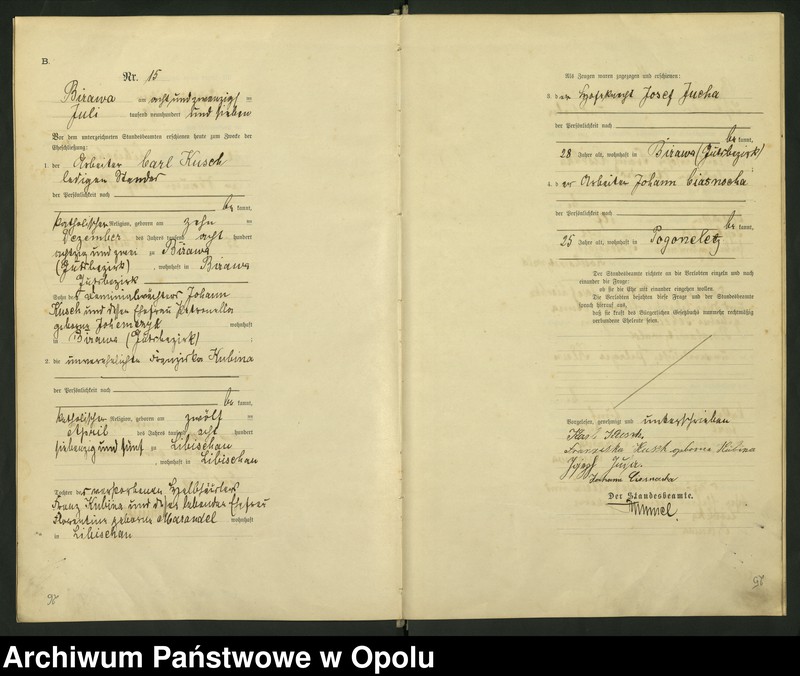 B.
Nr. 15
Birawa am acht und zwanzigsten
Juli tausend neunhundert und sieben
Vor dem unterzeichneten Standesbeamten erschienen heute zum Zwecke der
Eheschließung:
1. der Arbeiter Carl Kusch
ledigen Standes
der Persönlichkeit nach
be kannt,
katholischer Religion, geboren am zehnten
Dezember des Jahres tausend acht hundert
achtzig und zwei zu Birawa
(Gutsbezirk), wohnhaft in Birawa
Gutsbezirk
Sohn des Johann
Kusch und dessen Ehefrau Petronella
geborene wohnhaft
in Birawa (Gutsbezirk)
2. die unverehelichte Franziska Kubina
der Persönlichkeit nach
be kannt,
katholischer Religion, geboren am zwölften
April des Jahres tausend acht hundert
siebenzig und fünf zu Libischau
, wohnhaft in Libischau
Tochter des verstorbenen Halbhäuslers
Franz Kubina und dessen lebenden Ehefrau
Florentine geborene wohnhaft
in Libischau
26
Als Zeugen waren zugezogen und erschienen:
3. der Hofknecht Josef Jucha
der Persönlichkeit nach
be kannt,
28 Jahre alt, wohnhaft in Birawa (Gutsbezirk)
4. der Arbeiter Johann Ciasnocha
der Persönlichkeit nach
be kannt,
25 Jahre alt, wohnhaft in Pogoneletz
Der Standesbeamte richtete an die Verlobten einzeln und nach
einander die Frage:
ob sie die Ehe mit einander eingehen wollen.
Die Verlobten bejahten diese Frage und der Standesbeamte
sprach hierauf aus,
daß sie kraft des Bürgerlichen Gesetzbuchs nunmehr rechtmäßig
verbundene Eheleute seien.
Vorgelesen, genehmigt und unterschrieben
Karl Kusch
Franziska Kusch geborene Kubina
Johann Ciesnocha
Der Standesbeamte.
Himmel
Archiwum Państwowe w Opolu